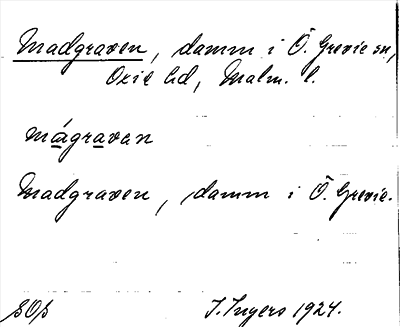 Madgraven, damm i Ö. Grevie sn,
Oxie hd, Malm. l.
mágravan
Madgraven, damm i Ö. Grevie.
I. Ingers 1924.